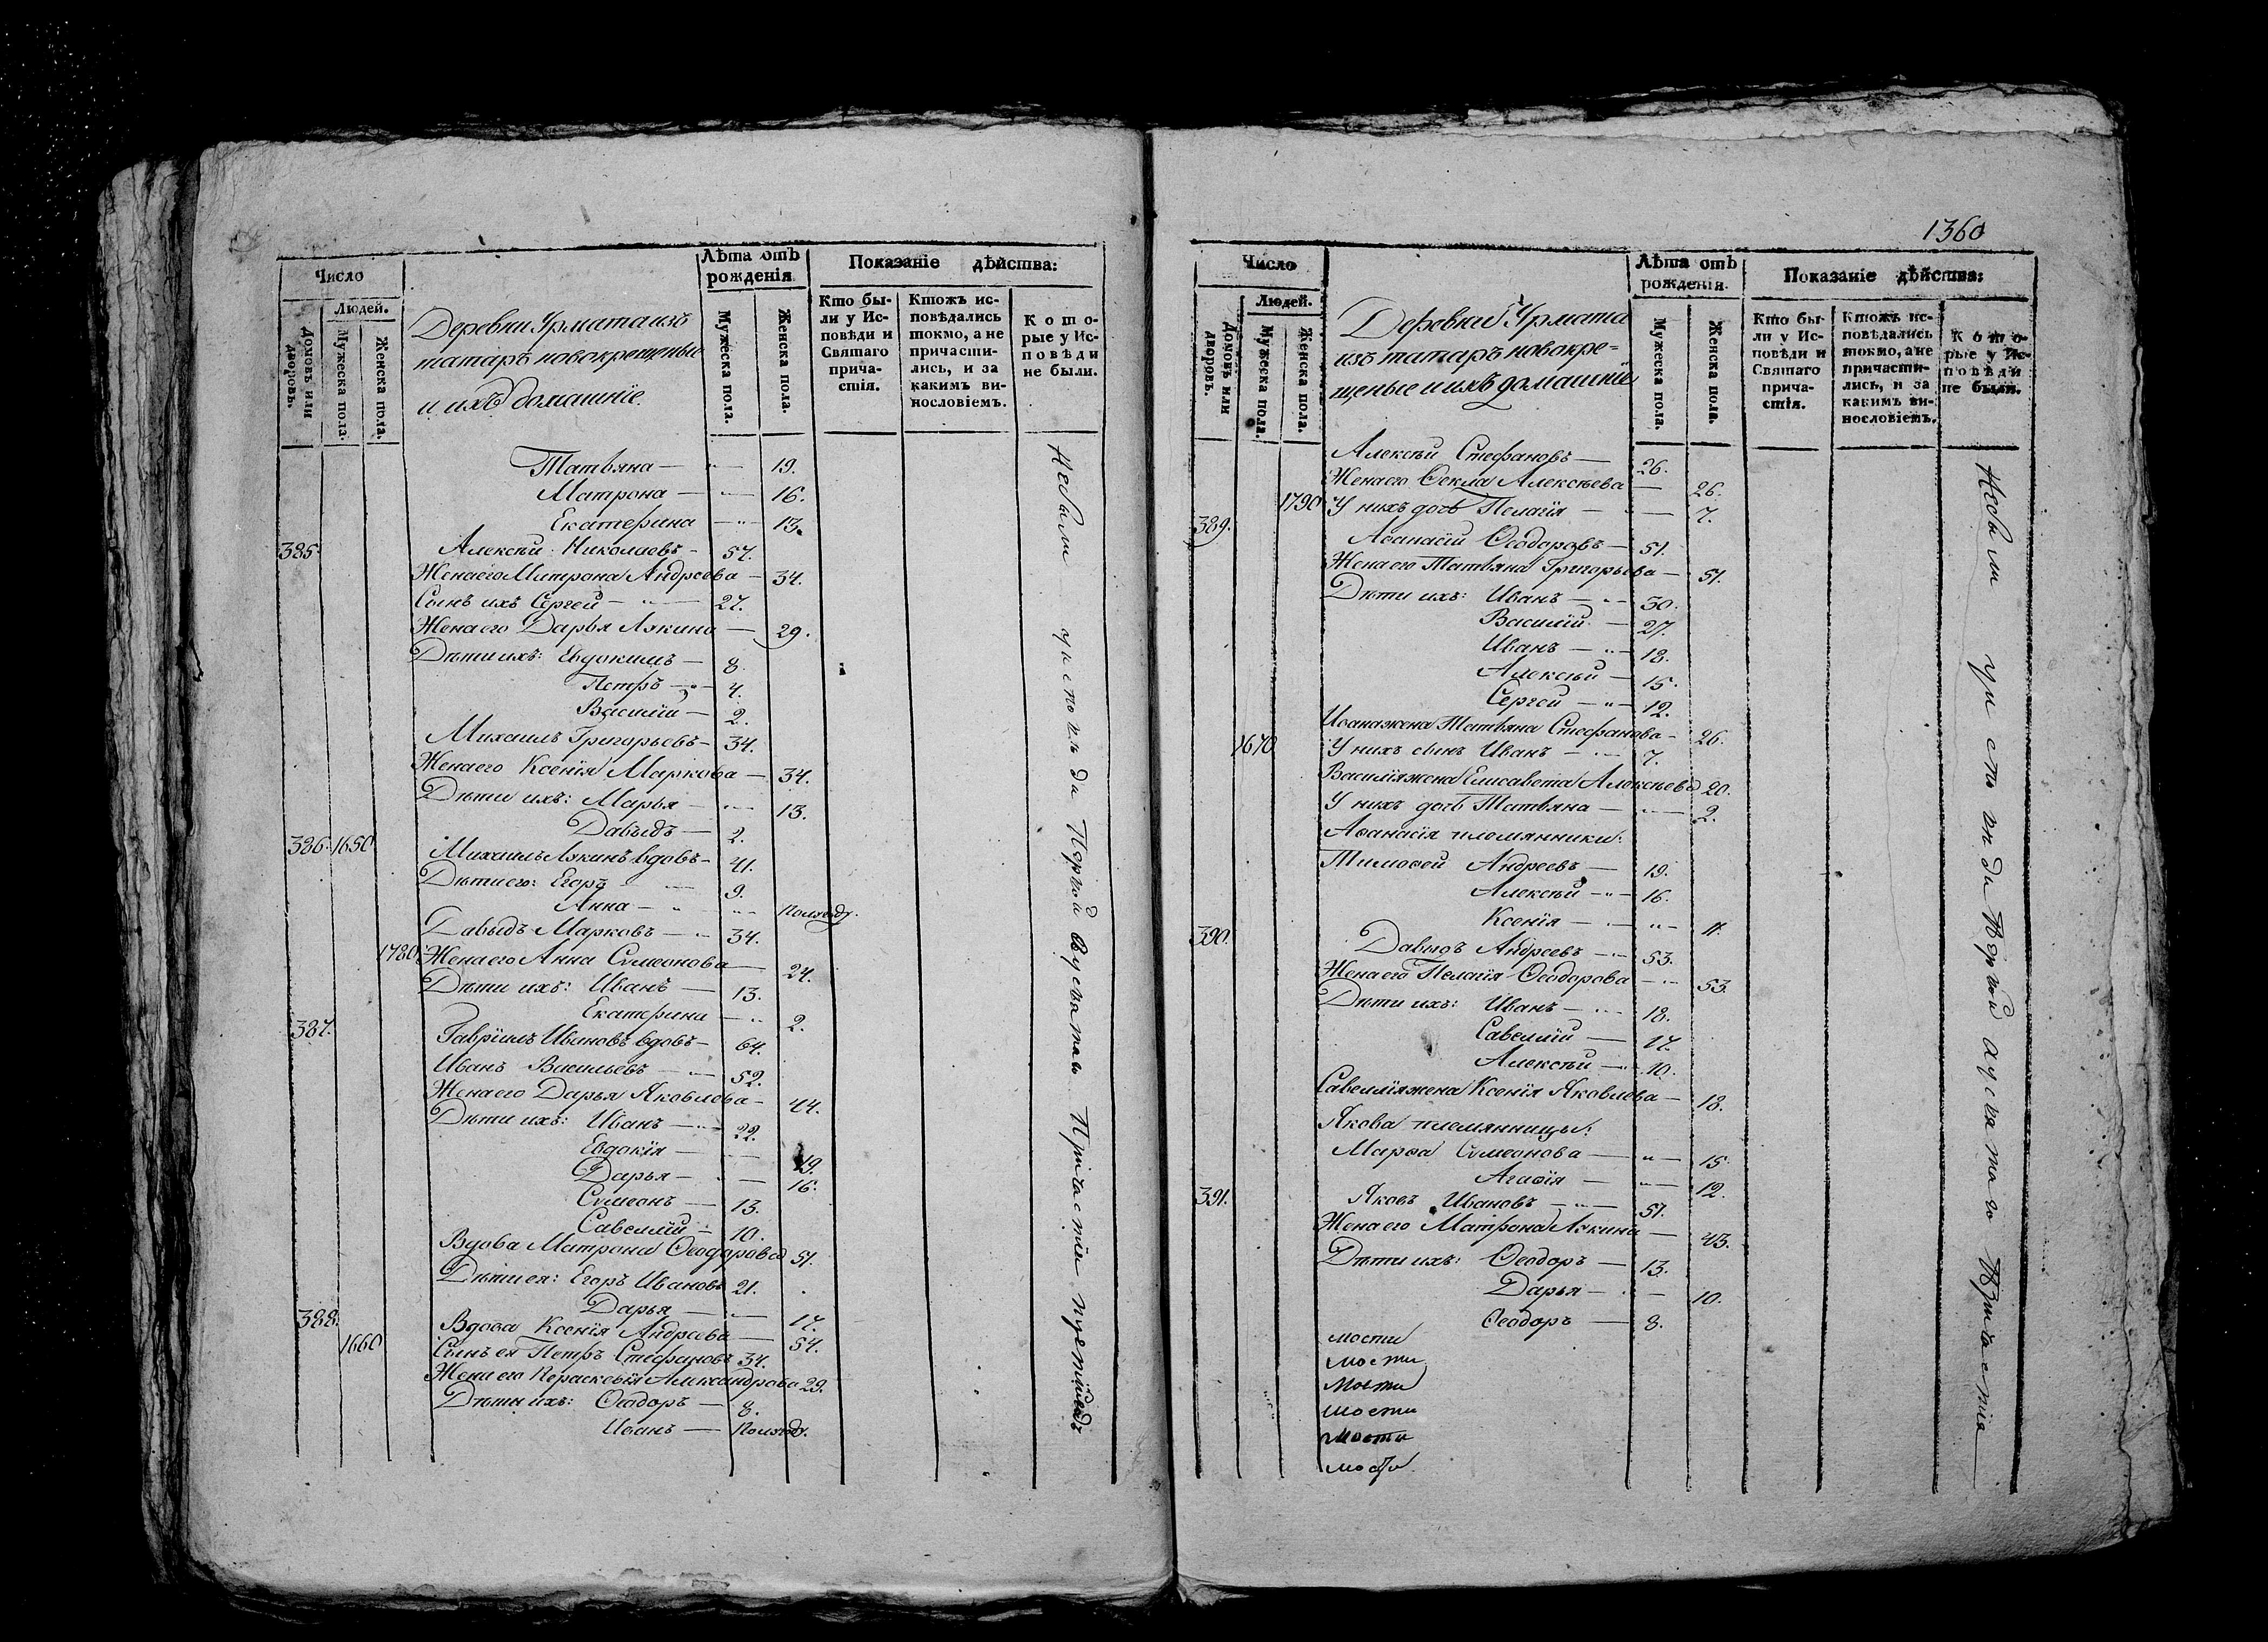 Число
Людей.
Домовъ или дворовъ.
Мужеска пола.
Женска пола.
Деревни Урмата изъ
татаръ новокрещеные
и ихъ домашніе.
Лѣта отъ рожденія
Мужеска пола.
Женска пола.
Показаніе дѣйства:
Кто бы-
ли у Ис-
повѣди и
Святаго
прича-
стія.
Ктожъ ис-
повѣдались
токмо, а не
причасти-
лись, и за
какимъ ви-
нословіемъ.
Кото-
рые у Ис-
повѣди
не были.
Татьяна — „ — 19.
Матрона — „ — 16.
Екатерина — „ — 13.
385. Алексѣй Николаевъ — 57.
Жена его Матрона Андреева — 34.
Сынъ ихъ Сергей — „ — 27.
Жена его Дарья Лукина — 29.
Дѣти ихъ: Евдокимъ — 8.
Петръ — „ — 4.
Василій — 2.
Михаилъ Григорьевъ — 34.
Жена его Ксенія Маркова — 34.
Дѣти ихъ: Марья — „ — 13.
Давыдъ — 2.
386. 1650 Михаилъ Лукинъ вдовъ — 41.
Дѣти его: Егоръ — 9.
Анна — „ — „ — полгоду.
Давыдъ Марковъ — „ — 34.
1780 Жена его Анна Сѵмеонова — 24.
Дѣти ихъ: Иванъ — 13.
Екатерина — „ 2.
387. Гавріилъ Ивановъ вдовъ — 64.
Иванъ Васильевъ — „ — 52.
Жена его Дарья Яковлева — 44.
Дѣти ихъ: Иванъ — „ — 22.
Евдокія — „ — 19.
Дарья — „ — 16.
Сѵмеонъ — 13.
Савелій — 10.
Вдова Матрона Ѳеодорова 51.
Дѣти ея: Егоръ Ивановъ 21.
Дарья — „ — 17.
388. Вдова Ксенія Андреева — 54.
1660 Сынъ ея Петръ Стефановъ 34.
Жена его Параскевія Александрова 29.
Дѣти ихъ: Ѳеодоръ — 8.
Иванъ — полгоду.
Небыли у исповѣди Первой Святаго Причастія
1360
Число
Людей.
Домовъ или дворовъ.
Мужеска пола.
Женска пола.
Деревни Урмата
изъ татаръ новокре=
щеные и ихъ домашніе
Лѣта отъ рожденія.
Мужеска пола.
Женска пола.
Показаніе дѣйства:
Кто бы-
ли у Ис-
повѣди и
Святаго
прича-
стія.
Ктожъ ис-
повѣдались
токмо, а не
причасти-
лись, и за
какимъ ви-
нословіемъ.
Кото-
рые у Ис-
повѣди
не были.
Алексѣй Стефановъ — 26.
Жена его Ѳекла Алексѣева — 26.
1790 У нихъ дочь Пелагія — „ — 7.
389. Аѳанасій Ѳеодоровъ — 51.
Жена его Татьяна Григорьева — 51.
Дѣти ихъ: Иванъ — „ — 30.
Василій — 27.
Иванъ — „ — 18.
Алексѣй — 15.
Сергей — „ — 12.
Ивана жена Татьяна Стефанова — 26.
1670 У нихъ сынъ Иванъ — „ — 7.
Василія жена Елисавета Алексѣева 20.
У нихъ дочь Татьяна — „ — 2.
Аѳанасія племянники:
Тимоѳей Андреевъ — 19.
Алексѣй — „ — 16.
Ксенія — „ — „ — 11.
390. Давыдъ Андреевъ — „ — 53.
Жена его Пелагія Ѳеодорова — „ — 53.
Дѣти ихъ: Иванъ — „ — 18.
Савелій — 17.
Алексѣй — „ — 10.
Савелія жена Ксенія Яковлева — 18.
Якова племянницы:
Марѳа Сѵмеонова — „ — 15.
Агаѳія — „ — 12.
391. Яковъ Ивановъ — „ — 51.
Жена его Матрона Лукина — 43.
Дѣти ихъ: Ѳеодоръ — 13.
Дарья — „ — 10.
Ѳеодоръ — 8.
мости
мости
мости
мости
мости
мости
Небыли у исповѣди Первой Святаго Причастія